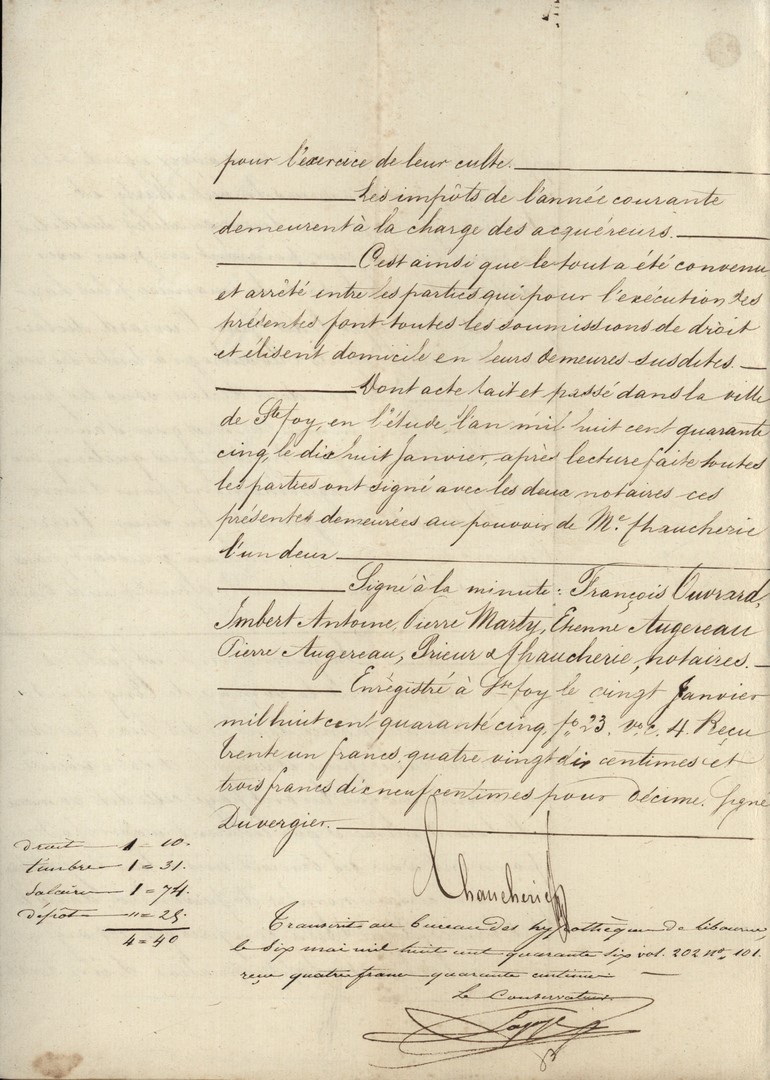 pour l'exercice de leur culte.
Les impôts de l'année courante
demeurent à la charge des acquéreurs.
C'est ainsi que le tout a été convenu
et arrêté entre les parties qui pour l'exécution des
présentes font toutes les soumissions de droit
et élisent domicile en leurs demeures susdites.
Dont acte fait et passé dans la ville
de Ste foy, en l'étude, l'an mil huit cent quarante
cinq, le dix huit Janvier, après lecture faite toutes
les parties ont signé avec les deux notaires ces
présentes demeurées au pouvoir de Me. Chaucherie
l'un deux.
Signé à la minute: François Ouvrard,
Imbert Antoine, Pierre Marty, Etienne Augereau
Pierre Augereau, Prieur & Chaucherie, notaires.
Enrégistré à Ste foy le vingt Janvier
mil huit cent quarante cinq, fo. 23. vo. c. 4. Reçu
trente un francs quatre vingt dix centimes et
trois francs dix neuf centimes pour décime. Signé
Duvergier.
droit 1 10.
timbre 1 = 31.
Salaire 1 = 74.
dépôt " = 25.
4 = 40
Chaucherie
Transcrit au bureau des hypothèque de Libourne,
le six mai mil huit cent quarante six vol. 202 no. 101.
reçu quatre franc quarante centime
Le Conservateur